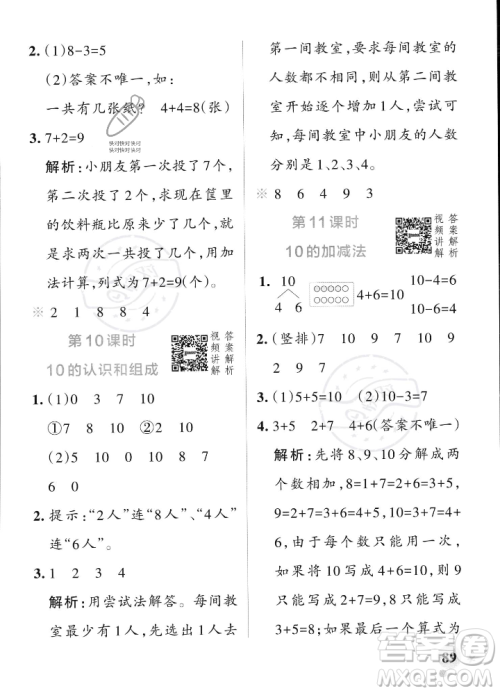 2. (1)8-3=5
(2)答案不唯一，如：
一共有几张纸？ 4+4=8(张)
3. 7+2=9
解析：小朋友第一次投了7个，
第二次投了2个，现在筐里
的饮料瓶比原来多了多少，就
是求两次一共投了多少，用加
法计算，列式为7+2=9(个)。
※ 2 4 1 9
第10课时
10的认识和组成
视频讲解
答案解析
1. (1)0 3 7 10
①7 8 10 ②2 10
(2)5 10 0 9 8 7
6 0
2. 提示：“2人”连“8人”、“4人”
连“6人”。
3. 1 2 3 4
解析：用尝试法解答。每间教
室最少有1人，先将1人放去
第一间教室，要求每间教室的
人数都不相同，则从第二间教
室开始逐步增加1人，尝试可
知，每间教室中小朋友的人数
分别是1、2、3、4。
※ 8 6 4 9 3
第11课时
10的加减法
视频讲解
答案解析
1. 10 10-4=6
4 6 4+6=10 10-6=4
2. (竖排) 10 10 7 9
8 2 10 9
3. (1)5+5=10 (2)10-3=7
4. 3+5 2+7 4+6(答案不唯一)
解析：先将8、9、10分解成两
个数相加的形式，8=1+7
8=2+6 8=3+5 9=1+8
9=2+7 9=3+6 9=4+5
10=1+9 10=2+8 10=3+7
10=4+6，因为每个数
只能用一次，所以8只能写成
3+5；如果最后一个算式为
89